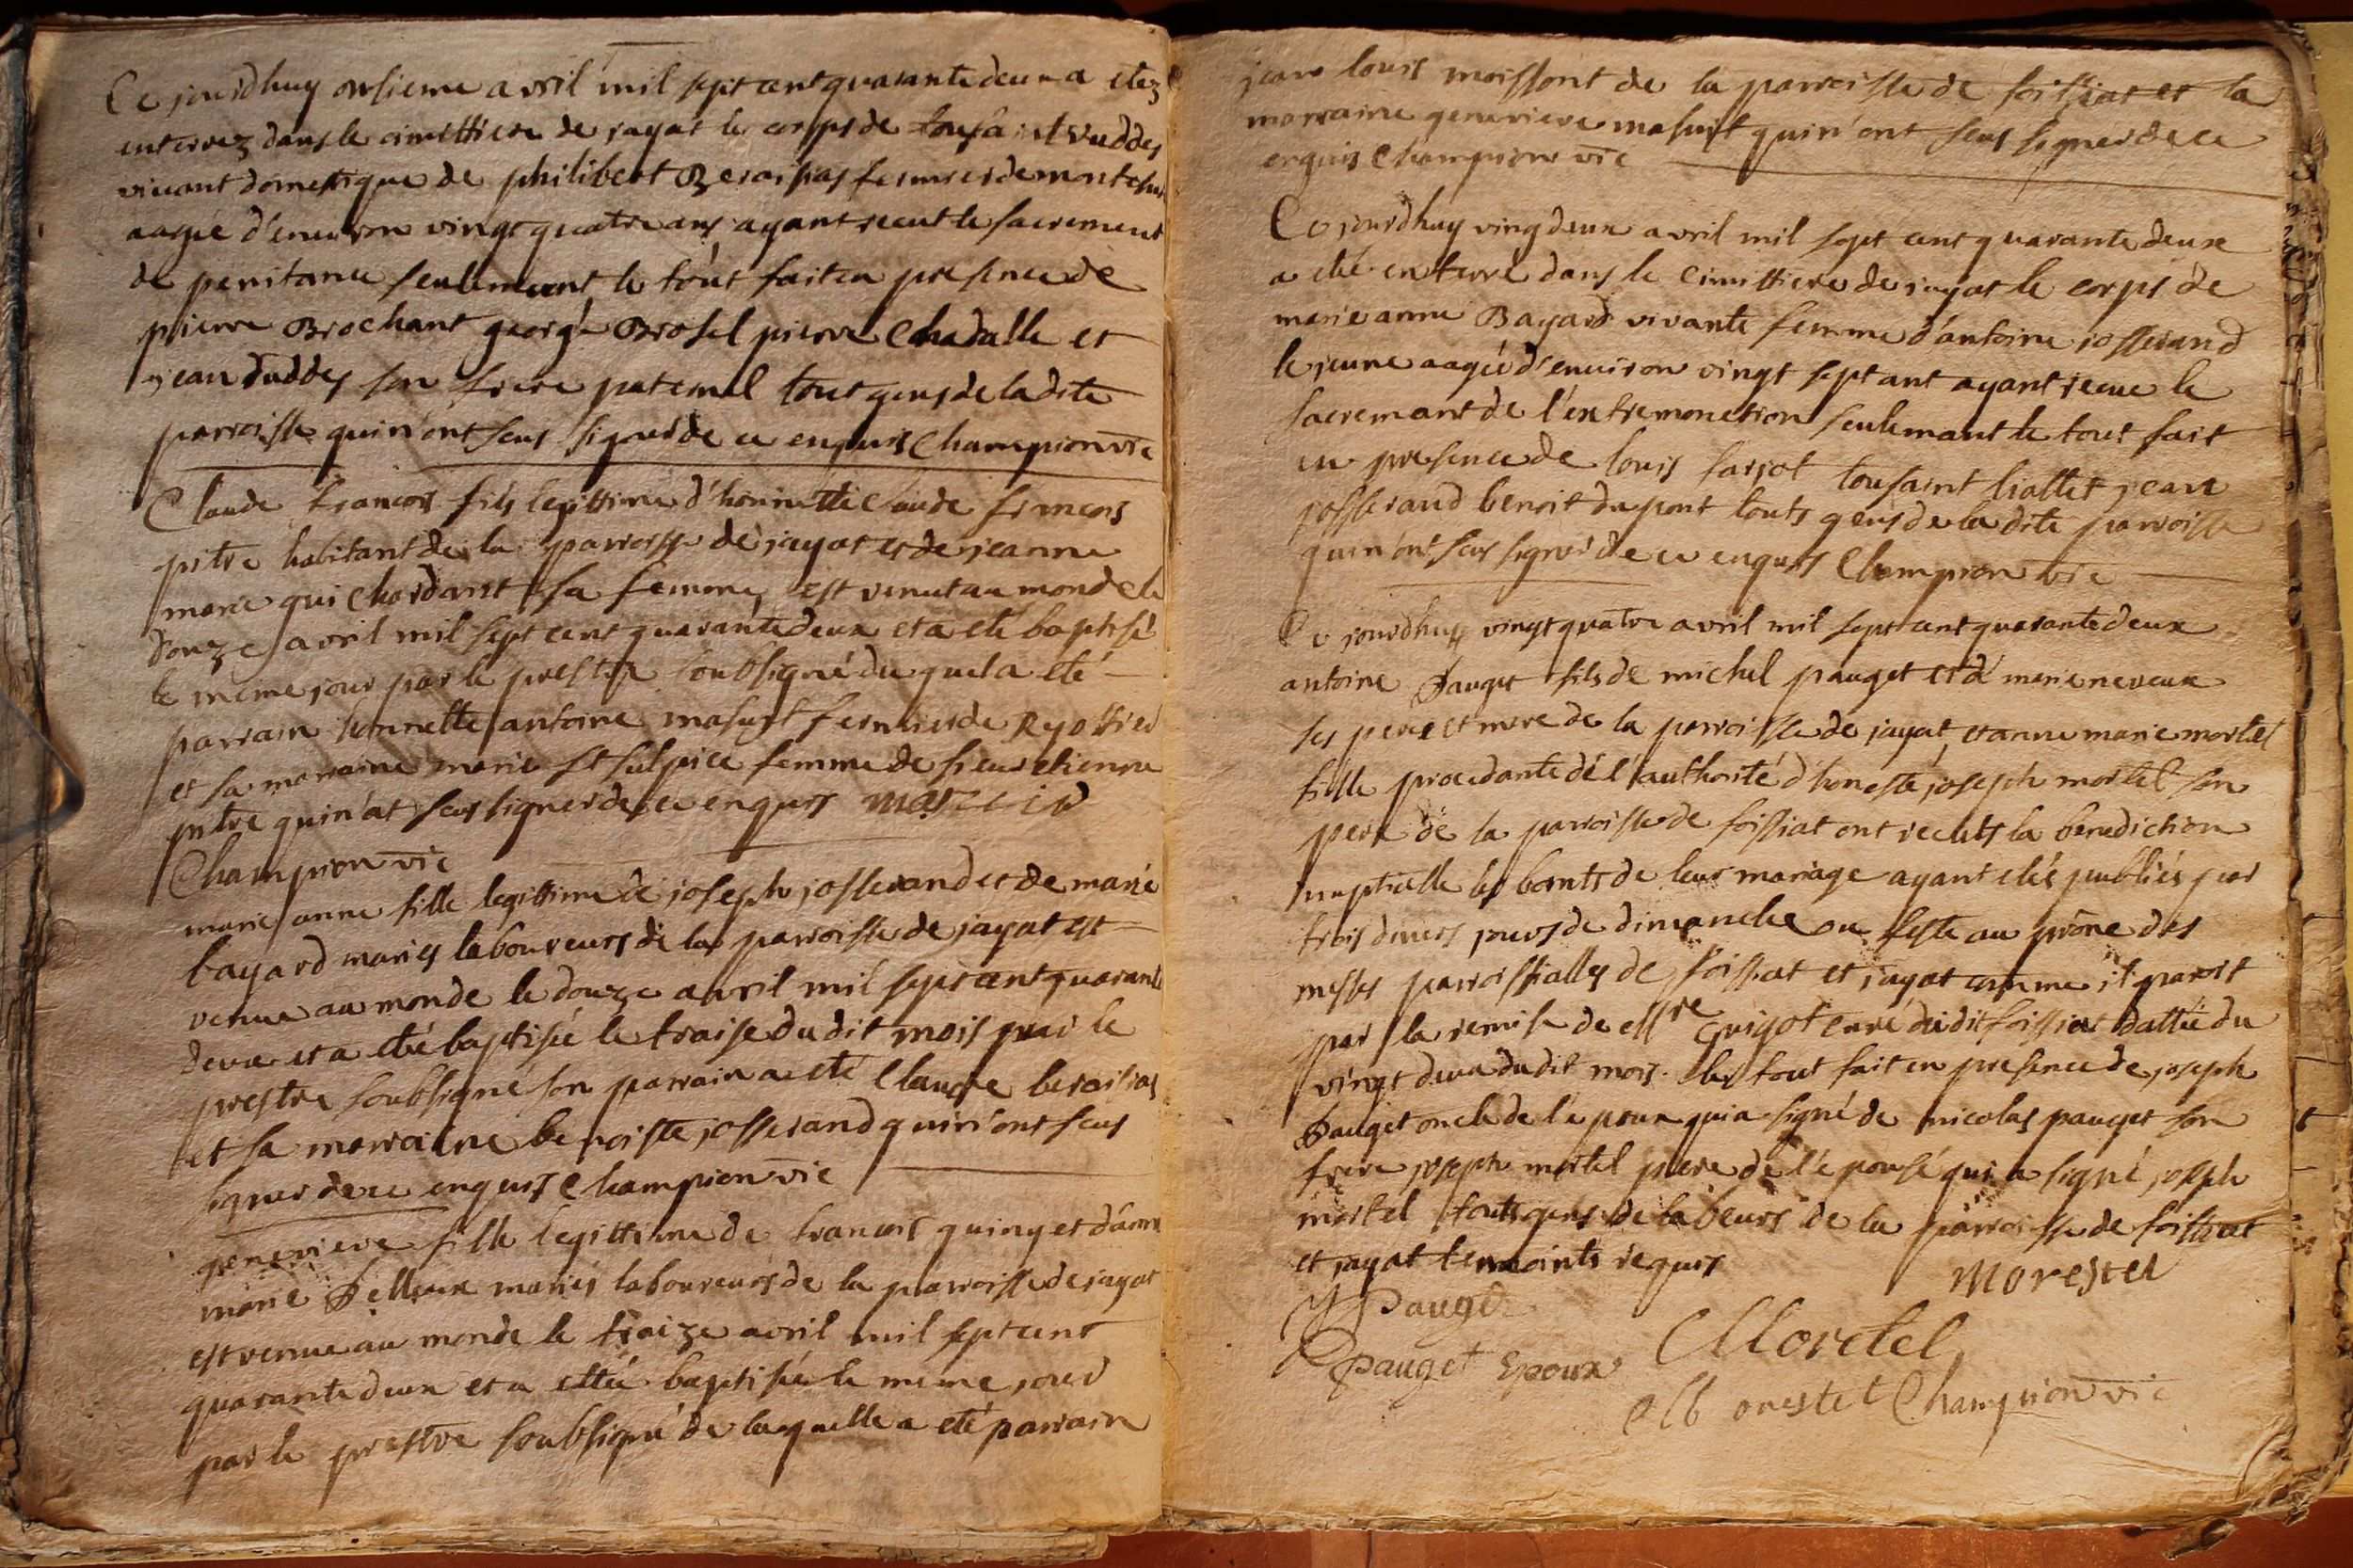 Ce jourdhuy onsieme avril mil sept cent quarante deux a etez
enterrez dans le cimettiere de jayat le corps de tousaint vuddes
vivant domestique de philibert Beraisas fermier de
aagée d'environ vingt quatre ans ayant recut le sacrement
de penitance seulement le tout fait en presence de
pierre Brochant george Brosel pierre Chadalle et
jean Duddes son frere paternel tout gens de la dite
parroisse quin'ont seus signer de ce enquis Champion vic
Claude francois fils legittime d'honnette Claude francois
pitre habitant de la parroisse de jayat et de jeanne
marie quichordant sa femme, est venut au monde le
douze avril mil sept cent quarante deux et a eté baptisé
le meme jour par le prestre soubsigné du quel a eté
parrain honnette antoine masuyt fermier de Ryottier
et sa marraine marie st sulpice femme de sieur etienne
pitre quin'at seus signer de ce enquis
Champion vic
marie anne fille legittime de joseph josserand et de marie
bayard mariés laboureurs de la parroisse de jayat est
venue au monde le douze avril mil sept cent quarante
deux et a eté baptisée le traise du dit mois par le
prestre soubsigné son parrain a eté Claude beraisas
et sa marraine benoiste josserand quin'ont seus
signer de ce enquis Champion vic
genevieve fille legittime de francois quiny et d'anne
marie Pelloux mariés laboureurs de la parroisse de jayat
est venue au monde le traize avril mil sept cent
quarante deux et a ettée baptisée le meme jour
par le prestre soubsigné de laquelle a eté parrain
jean louis moissont de la parroisse de foissiat et la
marraine genevieve masuyt quin'ont seus signer de ce
enquis Champion vic
Ce jourdhuy vingdeux avril mil sept cent quarante deux
a eté enterré dans le cimittiere de jayat le corps de
marie anne Bayard vivante femme d'antoine josserand
le jeune aagée d'environ vingt sept ant ayant recue le
sacremant de l'extremonction seulemant le tout fait
en presence de louis farjot tousaint liattet jean
josserand benoit dupont touts gens de la dite parroisse
quin'ont seus signer de ce enquis Champion vic
Ce jourdhuy vingt quatre avril mil sept cent quarante deux
antoine Pauget fils de michel pauget et de marie neveux
ses pere et mere de la parroisse de jayat, et anne marie mortel
fille procedante de l'authorité d'honeste joseph mortel son
pere de la parroisse de foissiat ont recuts la benediction
nuptialle les bants de leur mariage ayant etés publiés par
trois divers jours de dimanche ou feste au prône des
messes parroissialles de foissiat et jayat comme il paroit
par la remise de Guigot curé dudit foissiat dattée du
vingt deux dudit mois. le tout fait en presence de joseph
Pauget oncle de l'epoux qui a signé de nicolas pauget son
frere joseph mortel pere de l'epousé qui a signé joseph
mortel touts gens de labeurs de la parroisse de foissiat
et jayat temoints requis
Morestel
J Pauget
Moretel
Pauget Epoux
Champion vic